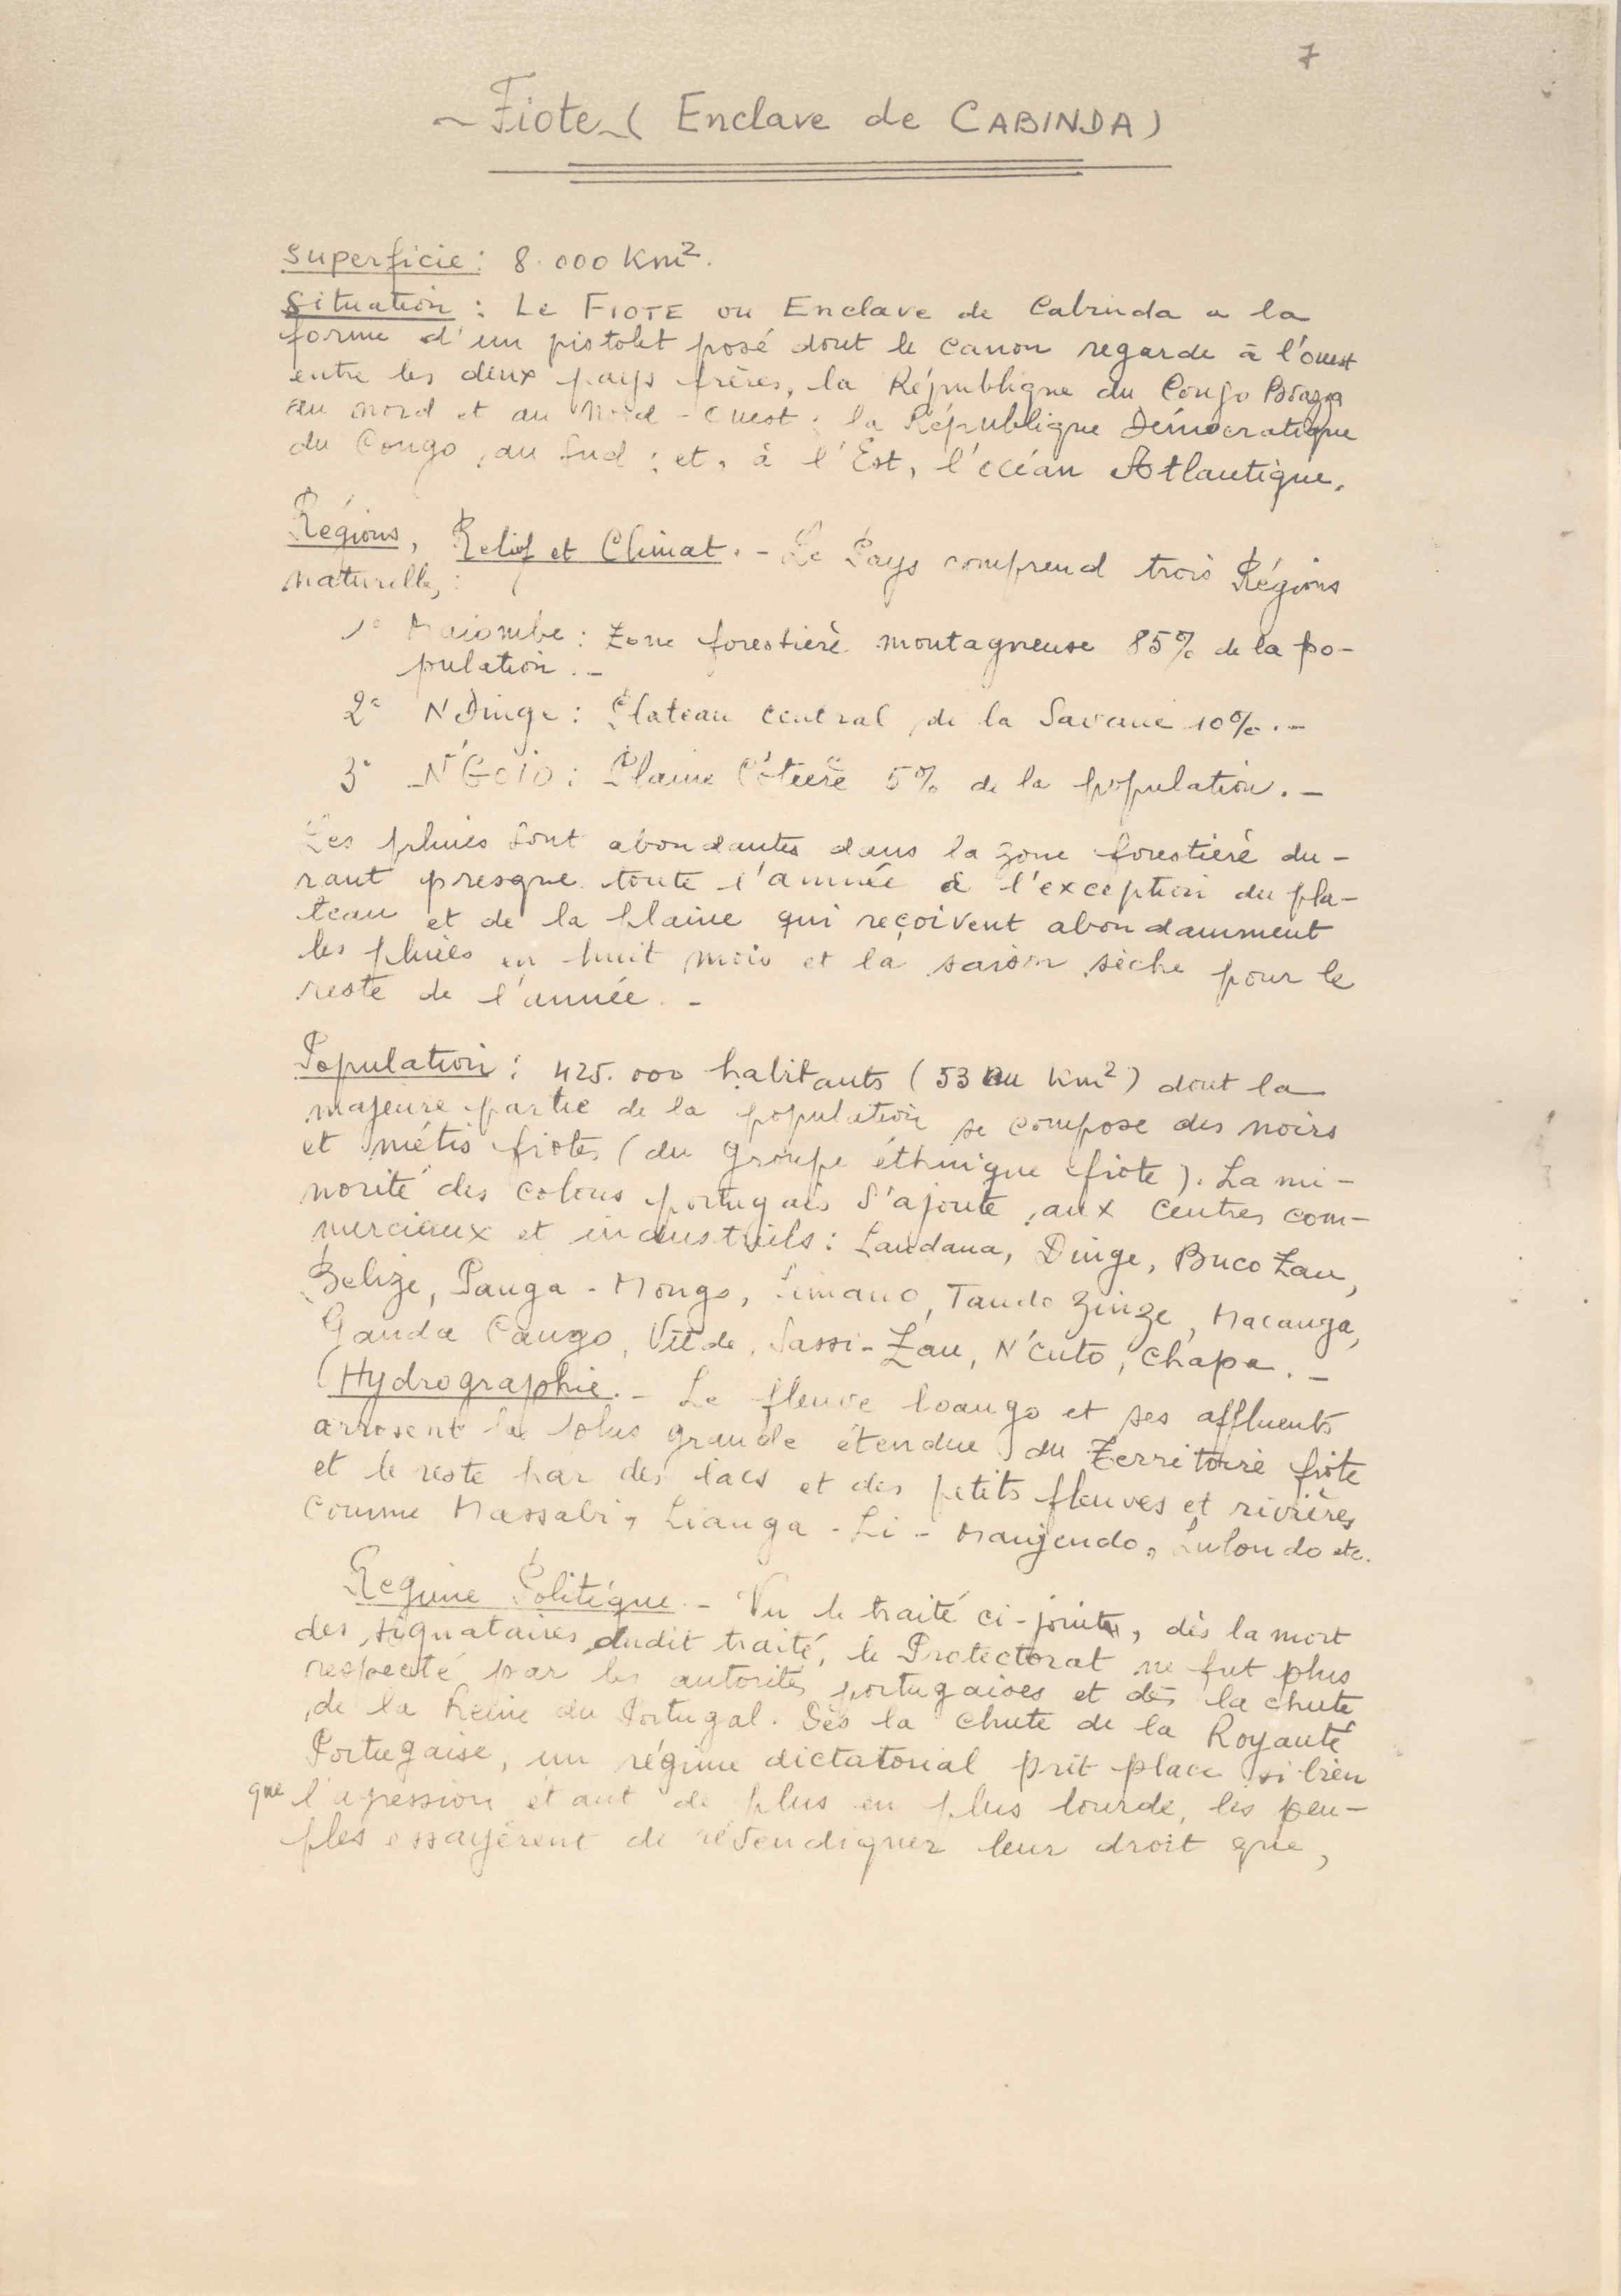 7
~ Fiote ~ ( Enclave de CABINDA )
Superficie : 8.000 Km².
Situation : Le FIOTE ou Enclave de Cabinda a la
forme d'un pistolet posé dont le canon regarde à l'ouest
entre les deux pays frères, la République du Congo Brazza
au nord et au Nord-Ouest ; la République Démocratique
du Congo, au Sud ; et, à l'Est, l'océan Atlantique.
Régions, Relief et Climat. - Le Pays comprend trois Régions
naturelles :
1º Maiombe : Zone forestière montagneuse 85% de la po-
pulation . -
2º N'Dinge : Plateau central de la Savane 10% . -
3º N'Goio : Plaine Côtière 5% de la population . -
Les pluies sont abondantes dans la zone forestière du-
rant presque toute l'année à l'exception du pla-
teau et de la plaine qui reçoivent abondamment
les pluies en huit mois et la saison sèche pour le
reste de l'année . -
Population : 425.000 habitants ( 53 au Km² ) dont la
majeure partie de la population se compose des noirs
et métis fiotes ( du groupe éthnique fiote ). La mi-
norité des colons portugais s'ajoute aux centres com-
merciaux et industriels : Landana, Dinge, Buco Zau,
Belize, Panga-Mongo, Simano, Tando Zinze, Macanga,
Ganda Cango, Vitde, Sassi-Zau, N'Cuto, Chapa . -
Hydrographie. - Le fleuve loango et ses affluents
arrosent la plus grande étendue du Territoire fiote
et le reste par des lacs et des petits fleuves et rivières
comme Massabi, Lianga-Li-Manjendo, Lulondo etc.
Regime Politique. - Vu le traité ci-joint, dès la mort
des signataires dudit traité, le Protectorat ne fut plus
respecté par les autorités portugaises et dès la chute
de la Reine du Portugal. Dès la chute de la Royauté
Portugaise, un régime dictatorial prit place si bien
que l'agression étant de plus en plus lourde, les peu-
ples essayèrent de revendiquer leur droit que,